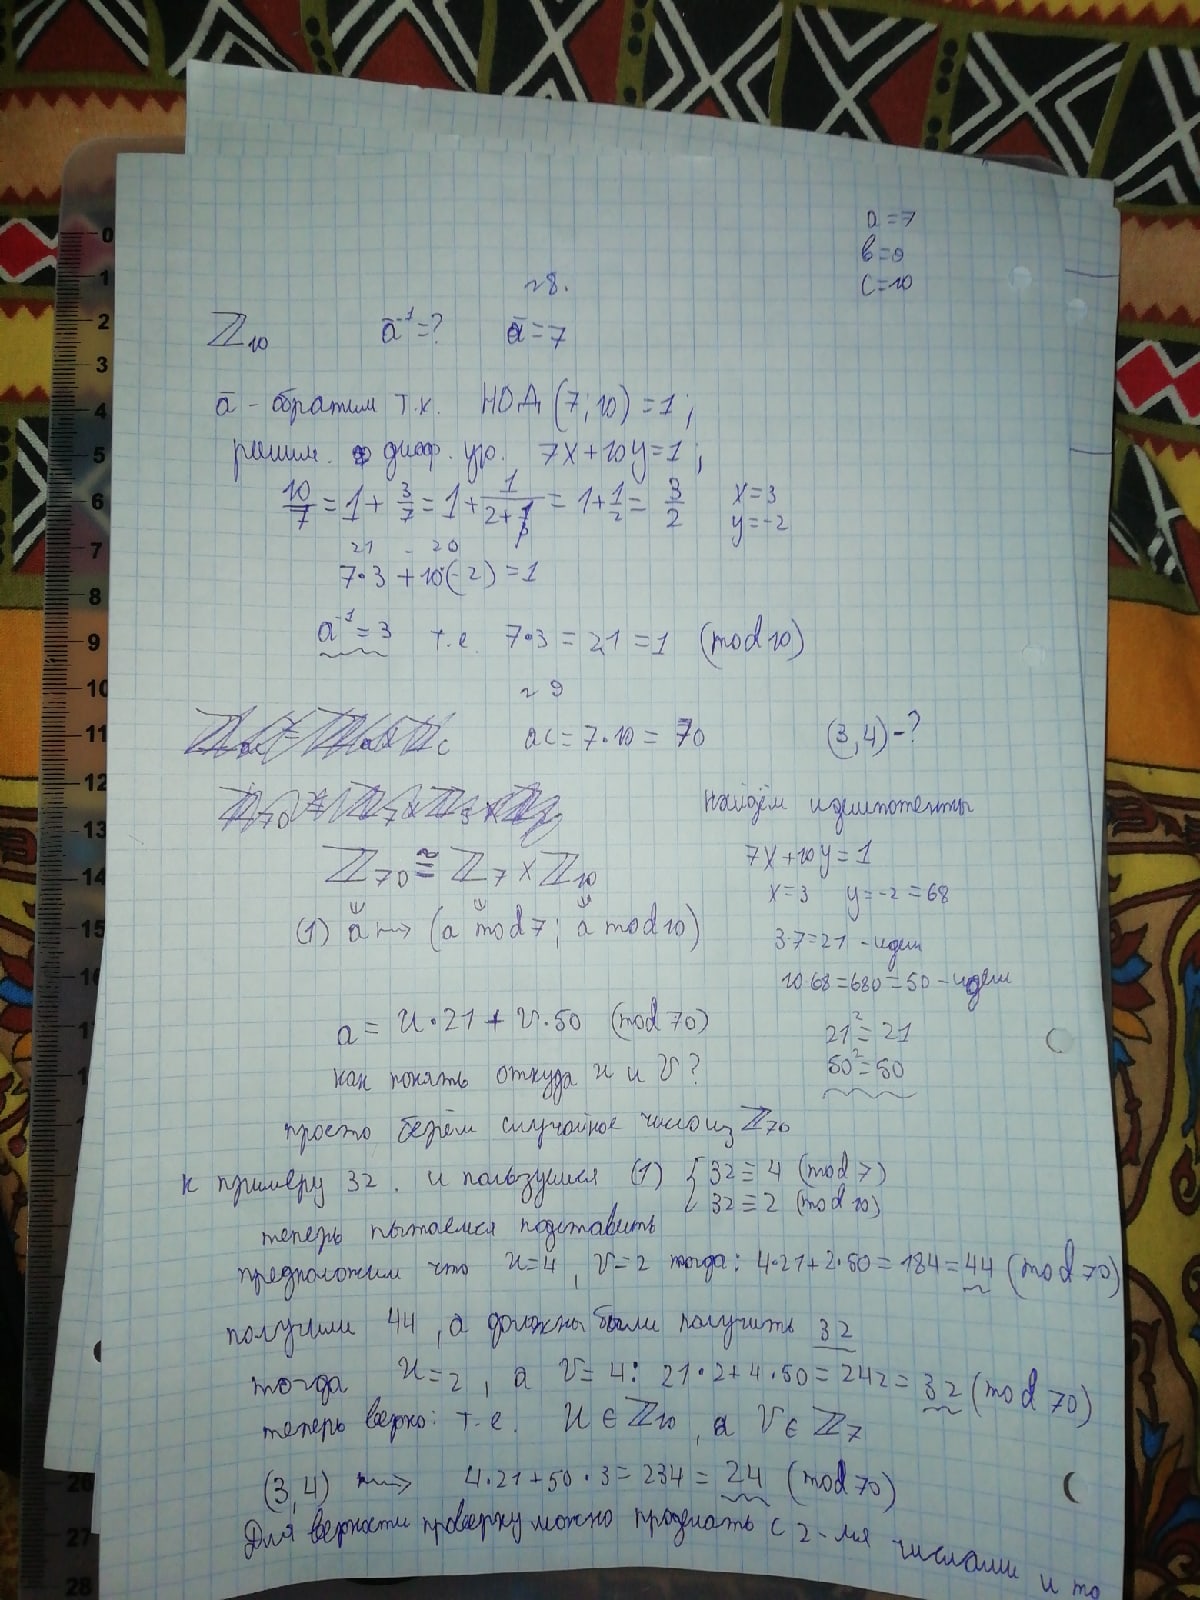 a = 7
b = 9
c = 10
№8.
ℤ₁₀ ā⁻¹ = ? ā = 7
ā - обратим т.к. НОД (7; 10) = 1;
решим диоф. ур. 7x + 10y = 1;
10/7 = 1 + 3/7 = 1 + 1/(2 + 1/3) = 1 + 1/2 = 3/2 x = 3
y = -2
21 - 20
7·3 + 10·(-2) = 1
a⁻¹ = 3 т.е. 7·3 = 21 = 1 (mod 10)
№9
ac = 7·10 = 70 (3,4) - ?
ℤ₇₀ ≅ ℤ₇ × ℤ₁₀
(1) a ⟼ (a mod 7; a mod 10)
Найдём идемпотенты
7x + 10y = 1
x = 3 y = -2 = 68
3·7 = 21 - идем
10·68 = 680 = 50 - идем
21² = 21
50² = 50
a = u·21 + v·50 (mod 70)
как понять откуда u и v?
просто берём случайное число из ℤ₇₀
к примеру 32. и пользуемся (1) { 32 ≡ 4 (mod 7)
32 ≡ 2 (mod 10)
теперь пытаемся подставить
предположим что u = 4, v = 2 тогда: 4·21 + 2·50 = 184 = 44 (mod 70)
получили 44, а должны были получить 32
тогда u = 2, а v = 4: 21·2 + 4·50 = 242 = 32 (mod 70)
теперь верно: т.е. u ∈ ℤ₁₀, а v ∈ ℤ₇
(3,4) ⟼ 4·21 + 50·3 = 234 = 24 (mod 70)
Для верности проверку можно проделать с 2-мя числами и то
0
1
2
3
4
5
6
7
8
9
10
11
12
13
14
15
16
27
28